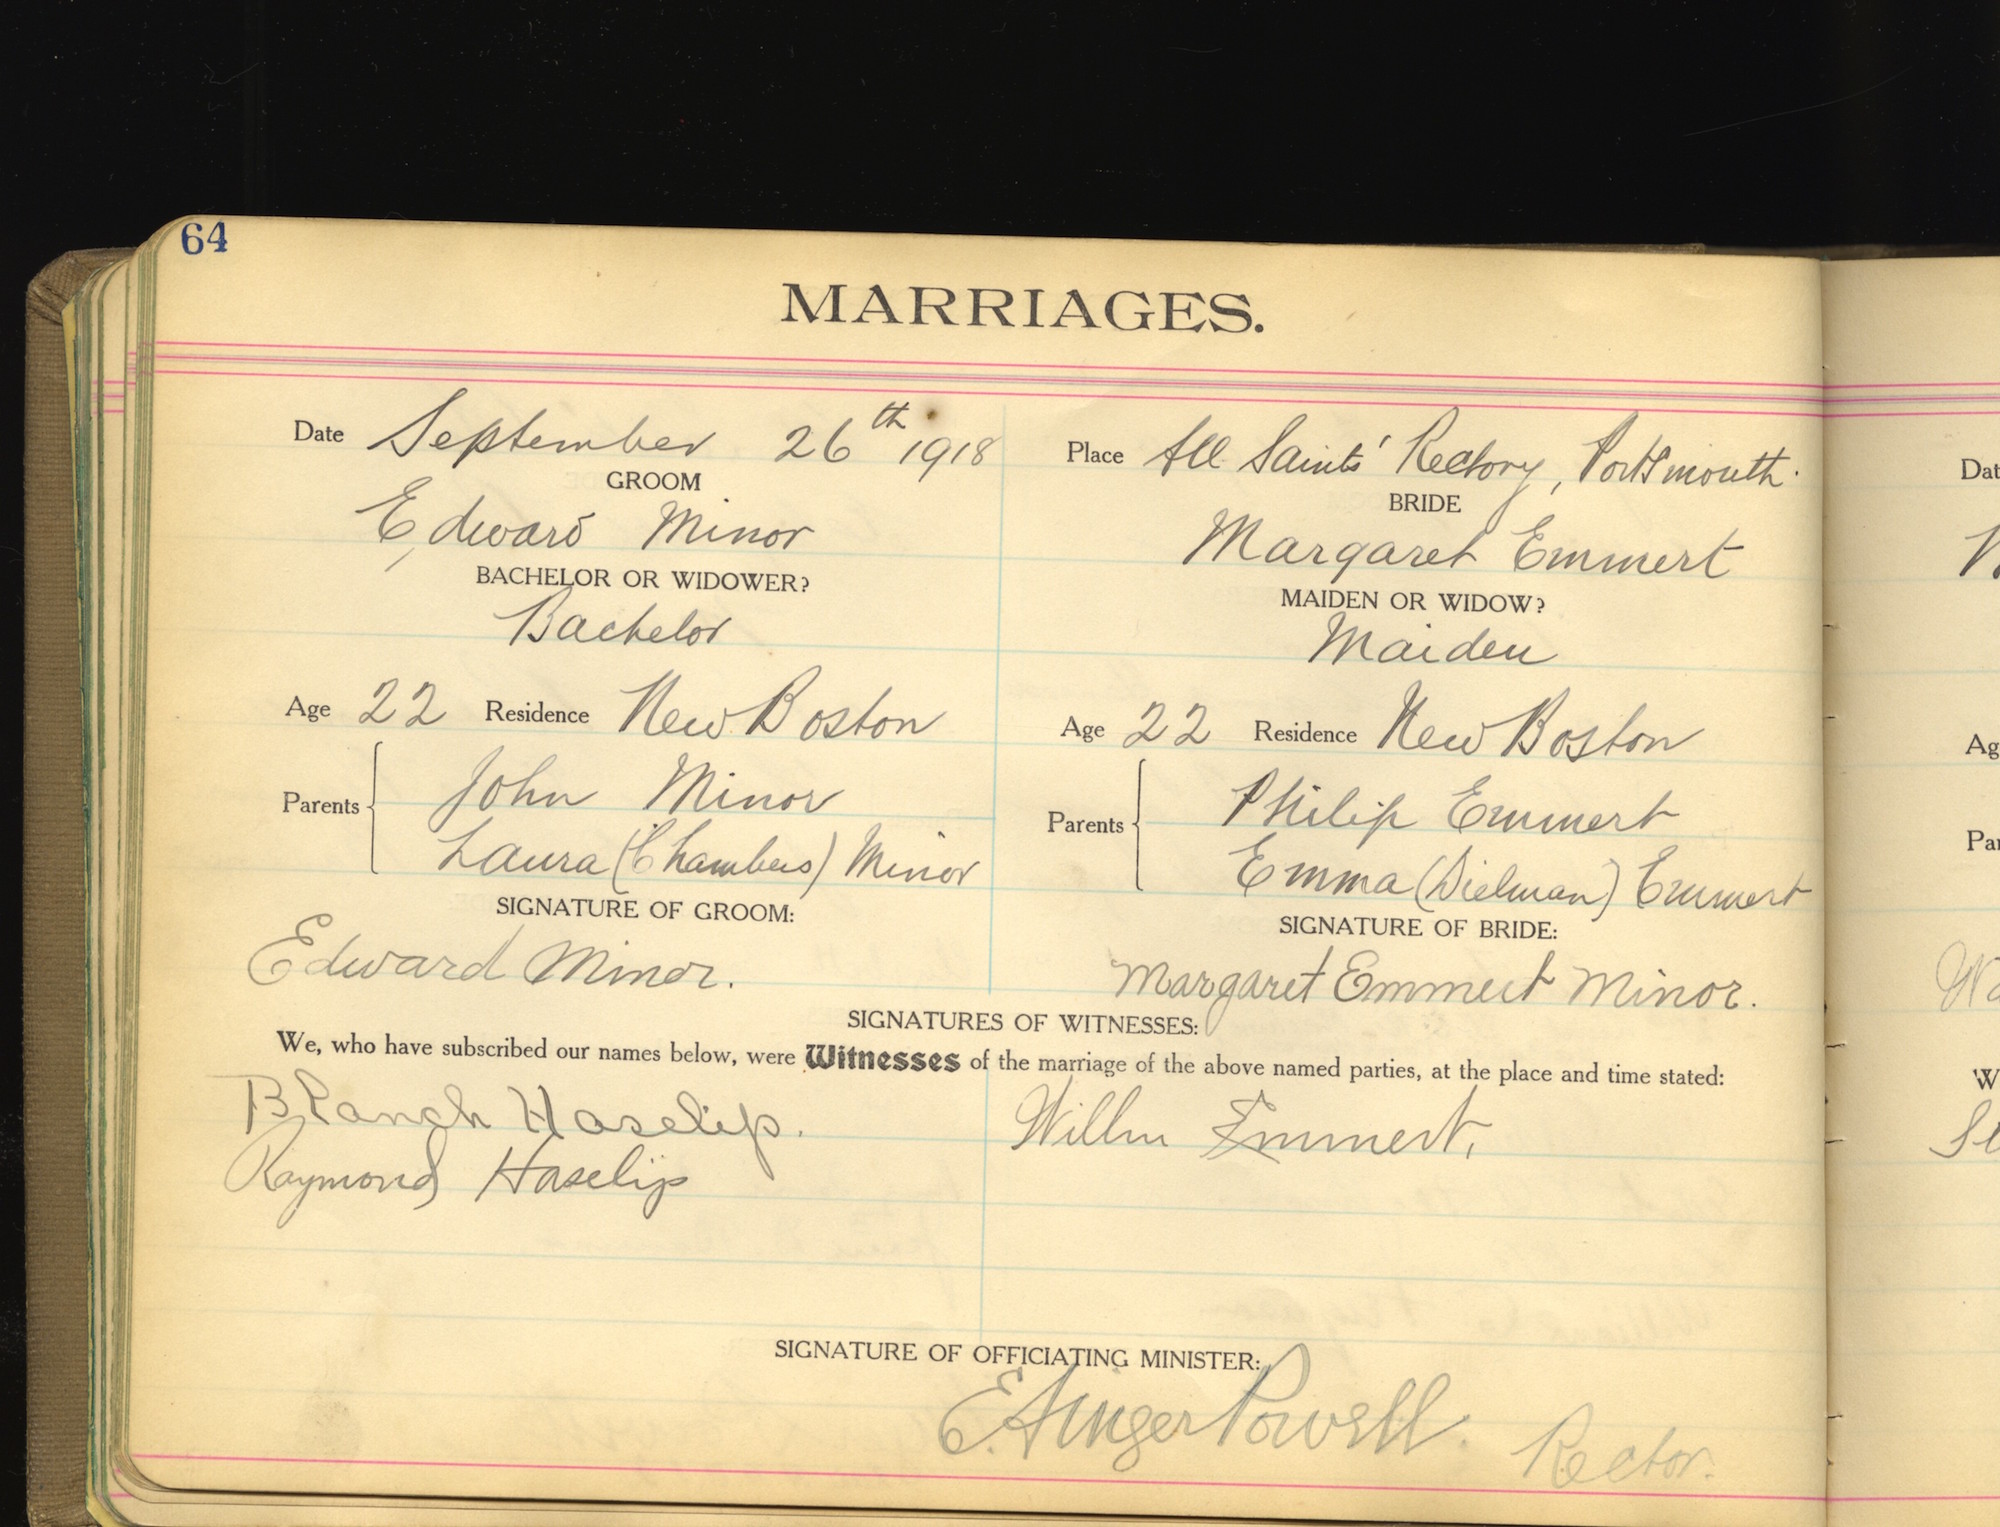 64
MARRIAGES.
Date September 26th 1918
Place All Saints' Rectory, Portsmouth.
GROOM
BRIDE
Edward Minor
Margaret Emmert
BACHELOR OR WIDOWER?
MAIDEN OR WIDOW?
Bachelor
Maiden
Age 22 Residence New Boston
Age 22 Residence New Boston
Parents John Minor
Laura (Chambers) Minor
Parents Philip Emmert
Emma (Dielman) Emmert
SIGNATURE OF GROOM:
SIGNATURE OF BRIDE:
Edward Minor.
Margaret Emmert Minor.
SIGNATURES OF WITNESSES:
We, who have subscribed our names below, were Witnesses of the marriage of the above named parties, at the place and time stated:
Blanch Haselip.
Willm Emmert,
Raymond Haselip
SIGNATURE OF OFFICIATING MINISTER:
E. Ainger Powell. Rector.
Dat
Ag
Par
W